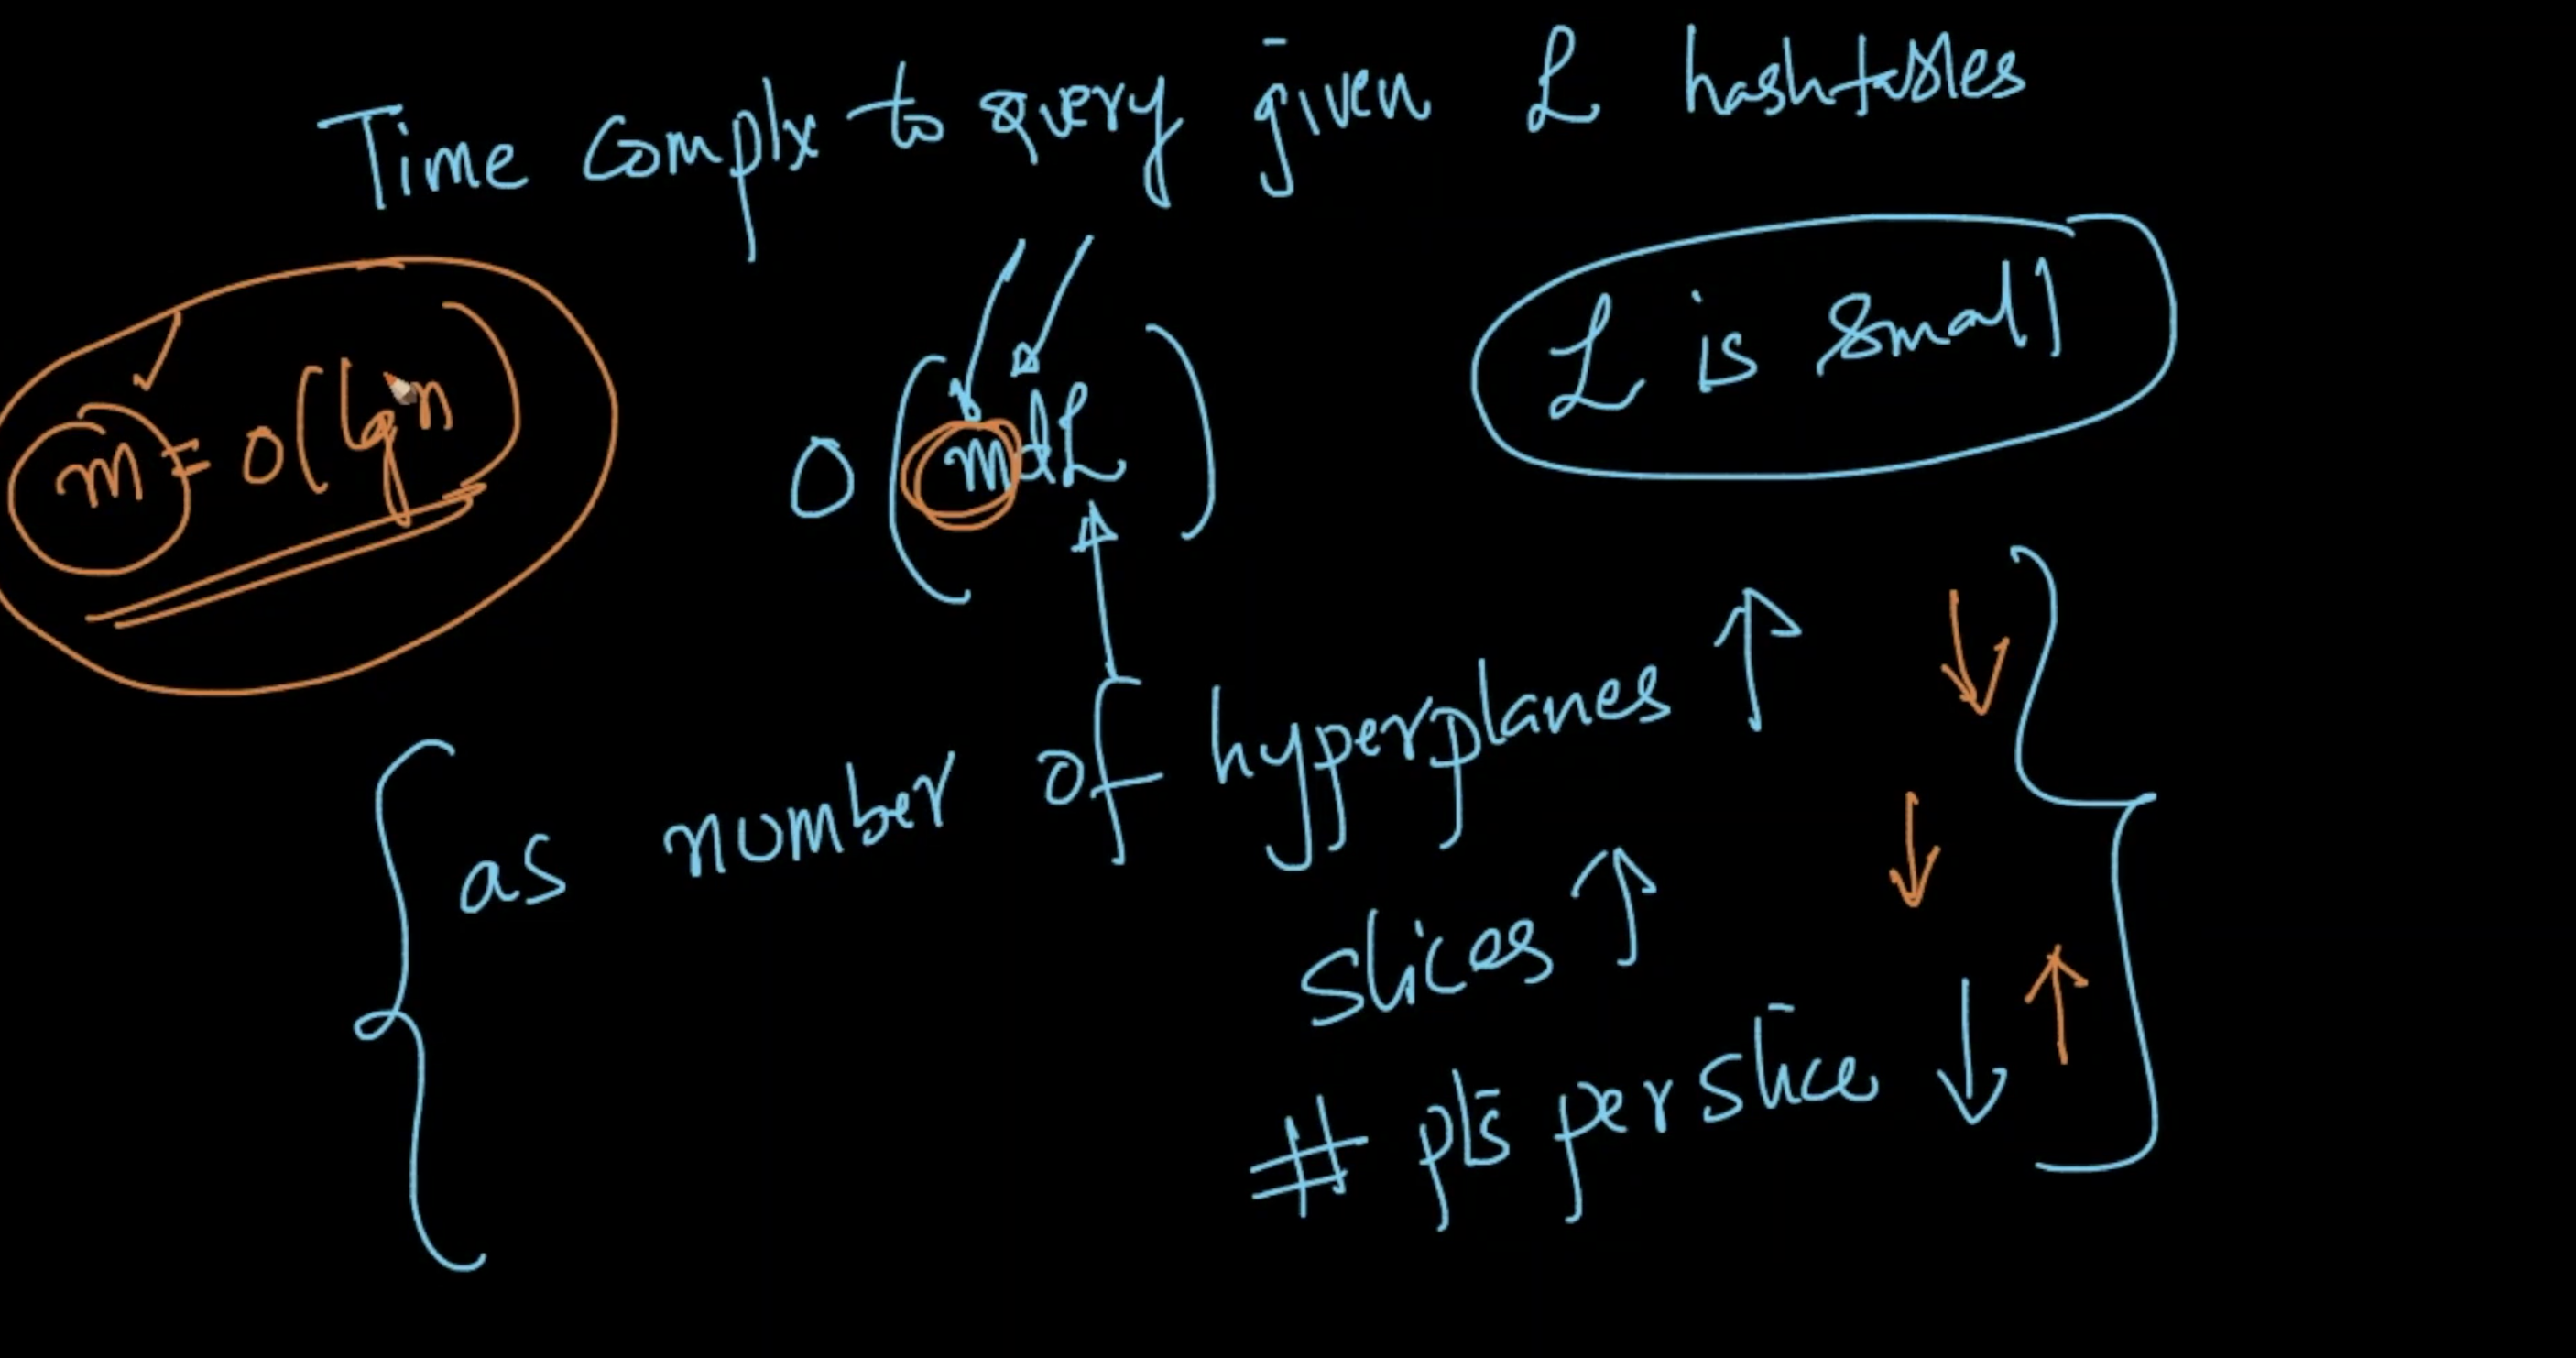 Time Complx to query given L hashtables
L is small
m = O(lgn)
O(mdL)
as number of hyperplanes ↑ ↓
slices ↑ ↓
# pts per slice ↓ ↑